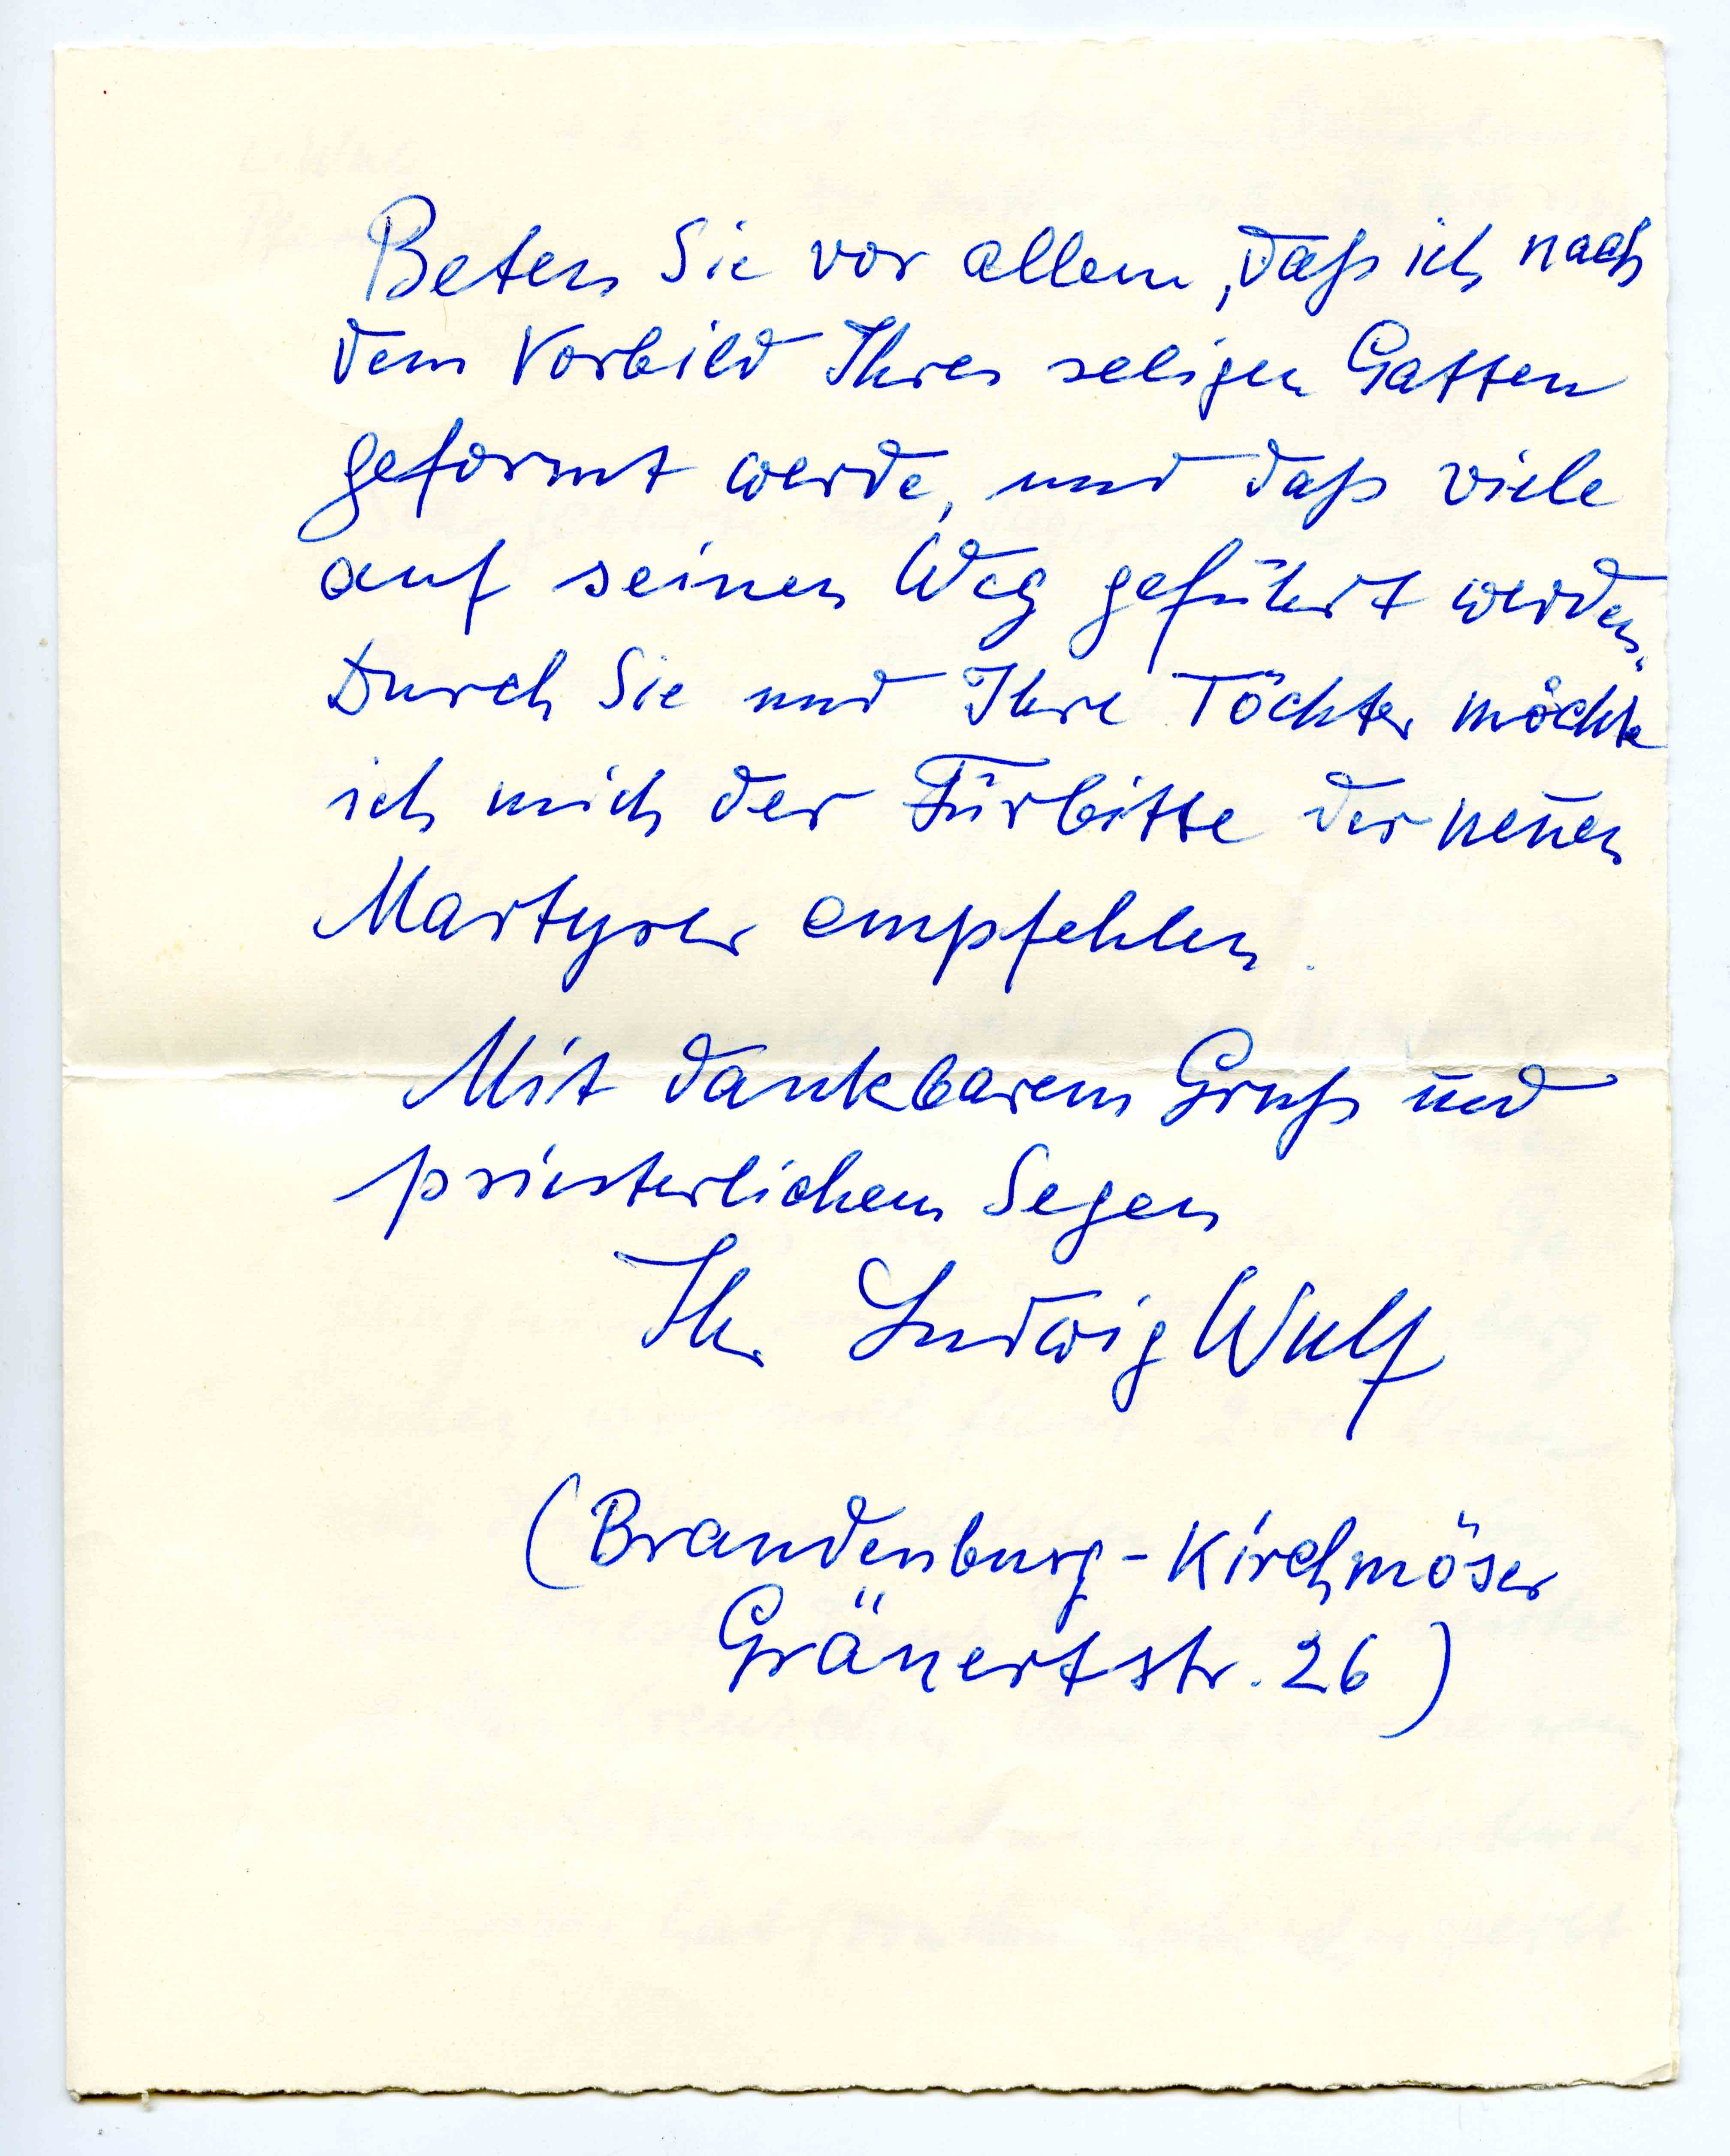 Beten Sie vor allem, daß ich nach
dem Vorbild Ihres seligen Gatten
geformt werde, und daß viele
auf seinen Weg geführt werden.
Durch Sie und Ihre Töchter möchte
ich mich der Fürbitte der neuen
Martyrer empfehlen.
Mit dankbarem Gruß und
priesterlichem Segen
Ihr Ludwig Wulf
(Brandenburg-Kirchmöser
Gränertstr. 26)